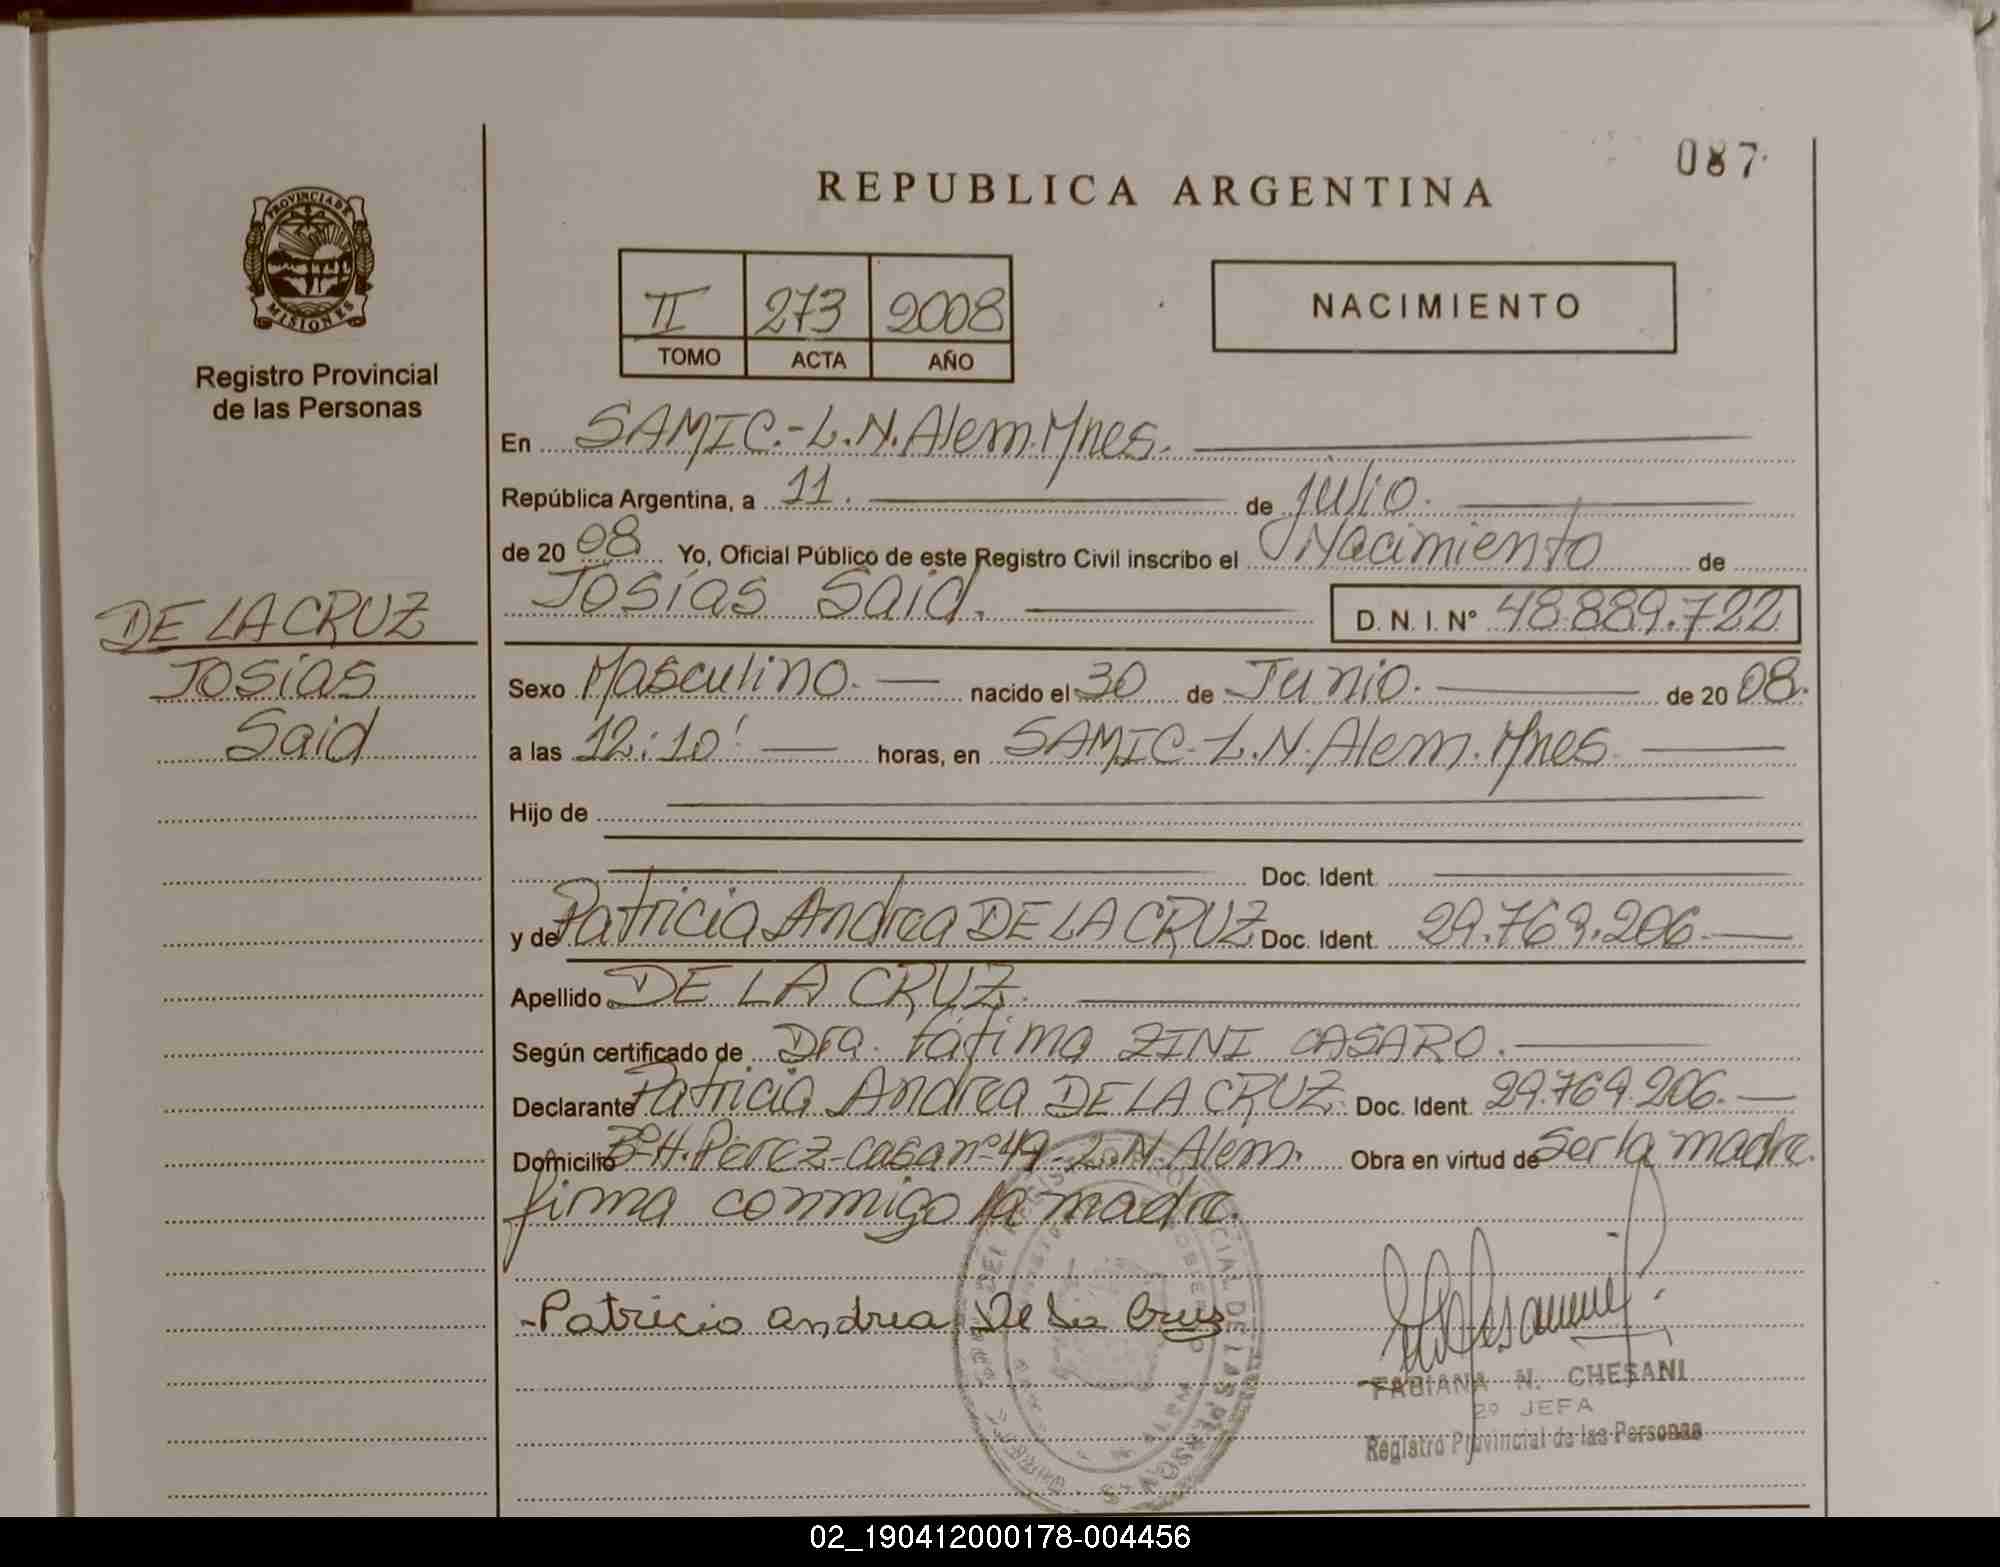 087
REPUBLICA ARGENTINA
PROVINCIA DE
MISIONES
Registro Provincial
de las Personas
II 273 2008
TOMO ACTA AÑO
NACIMIENTO
En SAMIC.-L.N.Alem.Mnes.
República Argentina, a 11. de julio.
de 2008 Yo, Oficial Público de este Registro Civil inscribo el Nacimiento de
Josías Said. D. N. I. N° 48.889.722
DE LA CRUZ
Josías
Said
Sexo Masculino. nacido el 30 de Junio. de 2008.
a las 12:10' horas, en SAMIC-L.N.Alem.Mnes.
Hijo de
Doc. Ident.
y de Patricia Andrea DE LA CRUZ Doc. Ident. 29.769.206
Apellido DE LA CRUZ.
Según certificado de Dra. Fátima ZINI CASARO.
Declarante Patricia Andrea DE LA CRUZ Doc. Ident. 29.769.206.
Domicilio Bº H. Pérez-casa nº 49-L.N.Alem. Obra en virtud de ser la madre.
firma conmigo la madre.
-Patricia Andrea De La Cruz
FABIANA N. CHESANI
2º JEFA
Registro Provincial de las Personas
02_190412000178-004456